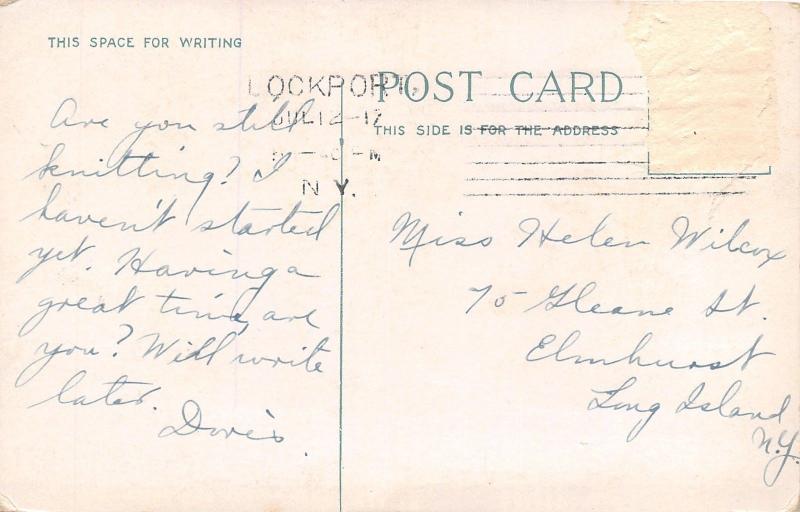 THIS SPACE FOR WRITING
LOCKPORT,
JUL 12-17
M
N.Y.
POST CARD
THIS SIDE IS FOR THE ADDRESS
Are you still
knitting? I
haven't started
yet. Having a
great time, are
you? Will write
later.
Doris.
Miss Helen Wilcox
75 Gleane St.
Elmhurst
Long Island
N.Y.